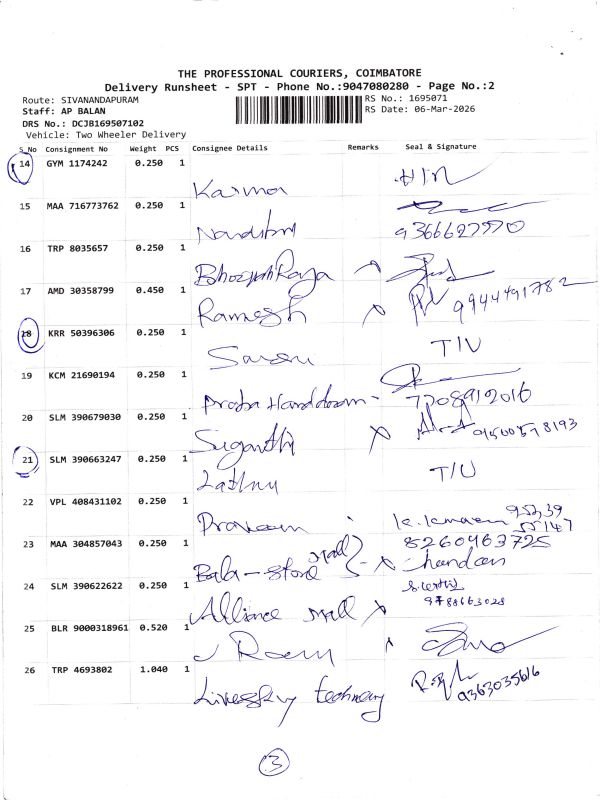 THE PROFESSIONAL COURIERS, COIMBATORE
Delivery Runsheet - SPT - Phone No.:9047080280 - Page No.:2
Route: SIVANANDAPURAM
RS No.: 1695071
Staff: AP BALAN
RS Date: 06-Mar-2026
DRS No.: DCJB169507102
Vehicle: Two Wheeler Delivery
S_No Consignment No Weight PCS Consignee Details Remarks Seal & Signature
14 GYM 1174242 0.250 1
Karma
15 MAA 716773762 0.250 1
9366627770
16 TRP 8035657 0.250 1
17 AMD 30358799 0.450 1
Ramesh 9944491782
18 KRR 50396306 0.250 1
19 KCM 21690194 0.250 1
7708912016
20 SLM 390679030 0.250 1
Suganthi
21 SLM 390663247 0.250 1
22 VPL 408431102 0.250 1
Praveen
23 MAA 304857043 0.250 1
8260463725
Bala - store Mall
24 SLM 390622622 0.250 1
9788663028
Alliance mall
25 BLR 9000318961 0.520 1
J Ram
26 TRP 4693802 1.040 1
9363035616
3